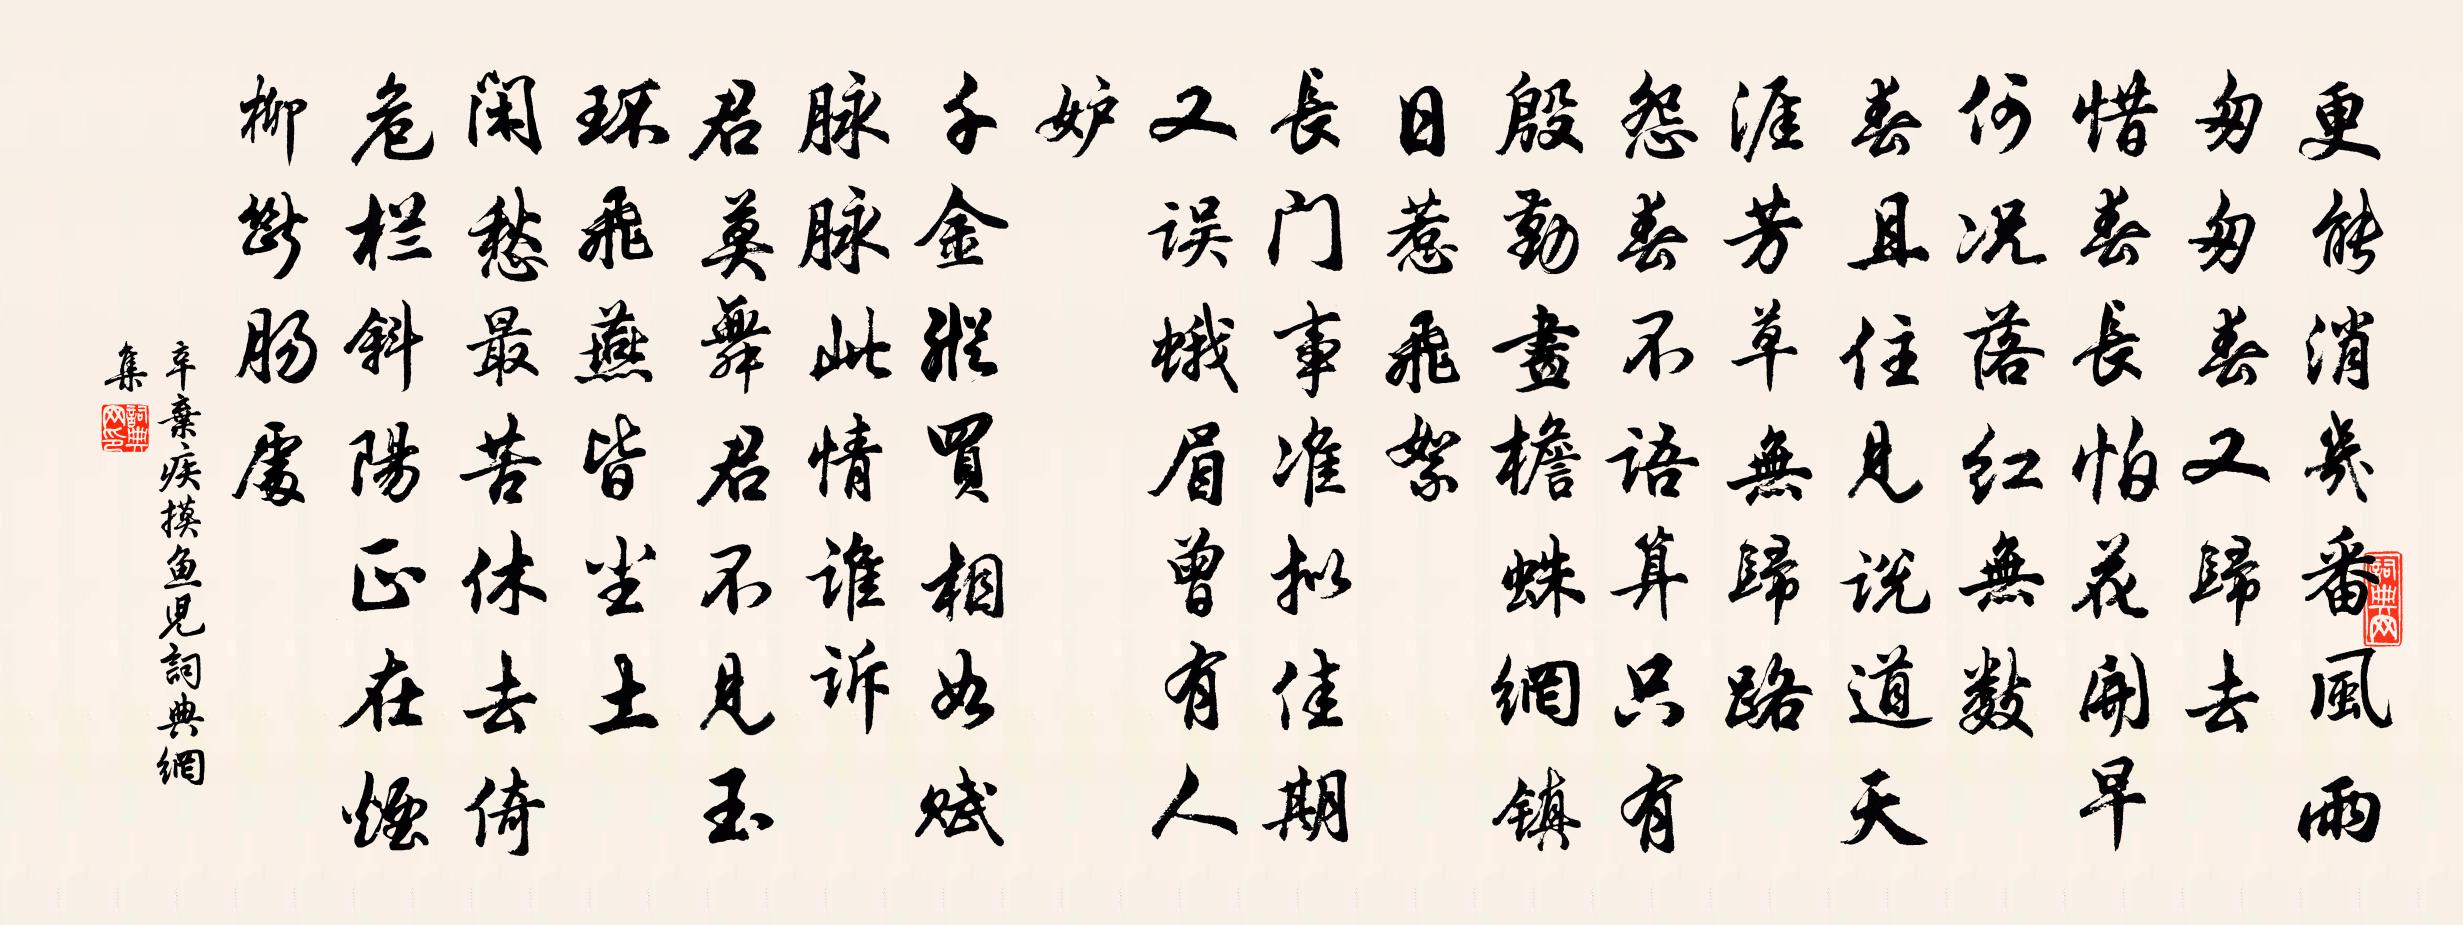 更能消幾番風雨
匆匆春又歸去
惜春長怕花開早
何況落红無数
春且住見说道天
涯芳草無歸路
怨春不語算只有
殷勤畫檐蛛網鎮
日惹飛絮
長门事准拟佳期
又误蛾眉曾有人
妒
千金縱買相如赋
脉脉此情谁诉
君莫舞君不見玉
环飛燕皆尘土
闲愁最苦休去倚
危栏斜陽正在煙
柳斷肠處
辛棄疾摸鱼兒詞典網
集
詞典网
詞典网印